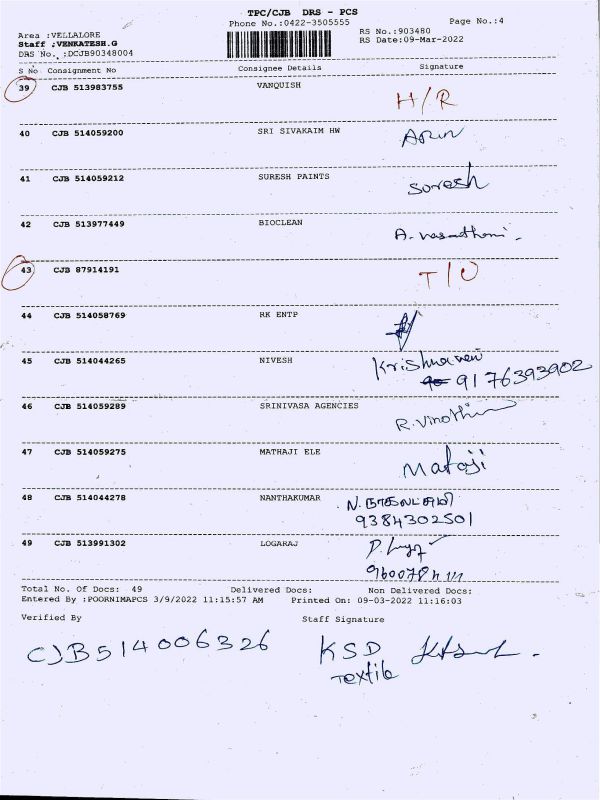 TPC/CJB DRS - PCS
Phone No.:0422-3505555 Page No.:4
Area :VELLALORE RS No.:903480
Staff ;VENKATESH.G RS Date:09-Mar-2022
DRS No. ;DCJB90348004
S No Consignment No Consignee Details Signature
39 CJB 513983755 VANQUISH H/R
40 CJB 514059200 SRI SIVAKAIM HW Arun
41 CJB 514059212 SURESH PAINTS Suresh
42 CJB 513977449 BIOCLEAN A.
43 CJB 87914191 T/O
44 CJB 514058769 RK ENTP
45 CJB 514044265 NIVESH
9176393902
46 CJB 514059289 SRINIVASA AGENCIES R.
47 CJB 514059275 MATHAJI ELE Mataji
48 CJB 514044278 NANTHAKUMAR N. நாகலட்சுமி
9384302501
49 CJB 513991302 LOGARAJ
Total No. Of Docs: 49 Delivered Docs: Non Delivered Docs:
Entered By :POORNIMAPCS 3/9/2022 11:15:57 AM Printed On: 09-03-2022 11:16:03
Verified By Staff Signature
CJB514006326 KSD
Textile